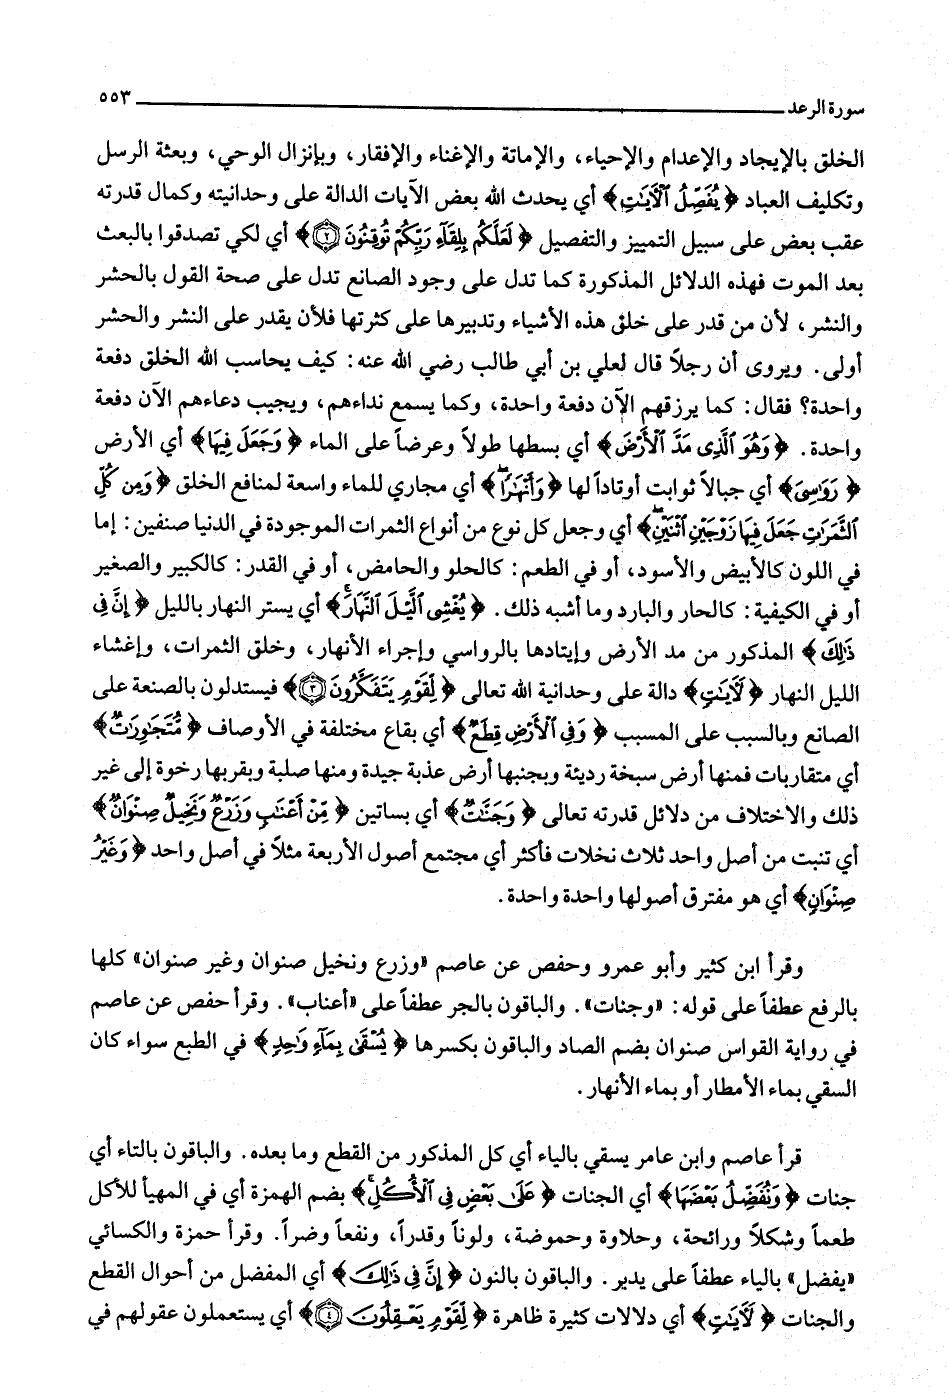 سورة الرعد ٥٥٣
الخلق بالإيجاد والإعدام والإحياء، والإماتة والإغناء والإفقار، وبإنزال الوحي، وبعثة الرسل
وتكليف العباد ﴿يُفَصِّلُ ٱلْآيَٰتِ﴾ أي يحدث الله بعض الآيات الدالة على وحدانيته وكمال قدرته
عقب بعض على سبيل التمييز والتفصيل ﴿لَعَلَّكُم بِلِقَآءِ رَبِّكُمْ تُوقِنُونَ ۝٢﴾ أي لكي تصدقوا بالبعث
بعد الموت فهذه الدلائل المذكورة كما تدل على وجود الصانع تدل على صحة القول بالحشر
والنشر، لأن من قدر على خلق هذه الأشياء وتدبيرها على كثرتها فلأن يقدر على النشر والحشر
أولى. ويروى أن رجلاً قال لعلي بن أبي طالب رضي الله عنه: كيف يحاسب الله الخلق دفعة
واحدة؟ فقال: كما يرزقهم الآن دفعة واحدة، وكما يسمع نداءهم، ويجيب دعاءهم الآن دفعة
واحدة. ﴿وَهُوَ ٱلَّذِى مَدَّ ٱلْأَرْضَ﴾ أي بسطها طولاً وعرضاً على الماء ﴿وَجَعَلَ فِيهَا﴾ أي الأرض
﴿رَوَٰسِىَ﴾ أي جبالاً ثوابت أوتاداً لها ﴿وَأَنْهَٰرًا ۖ﴾ أي مجاري للماء واسعة لمنافع الخلق ﴿وَمِن كُلِّ
ٱلثَّمَرَٰتِ جَعَلَ فِيهَا زَوْجَيْنِ ٱثْنَيْنِ ۖ﴾ أي وجعل كل نوع من أنواع الثمرات الموجودة في الدنيا صنفين: إما
في اللون كالأبيض والأسود، أو في الطعم: كالحلو والحامض، أو في القدر: كالكبير والصغير
أو في الكيفية: كالحار والبارد وما أشبه ذلك. ﴿يُغْشِى ٱلَّيْلَ ٱلنَّهَارَ ۚ﴾ أي يستر النهار بالليل ﴿إِنَّ فِى
ذَٰلِكَ﴾ المذكور من مد الأرض وإيتادها بالرواسي وإجراء الأنهار، وخلق الثمرات، وإغشاء
الليل النهار ﴿لَآيَٰتٍ﴾ دالة على وحدانية الله تعالى ﴿لِقَوْمٍ يَتَفَكَّرُونَ ۝٣﴾ فيستدلون بالصنعة على
الصانع وبالسبب على المسبب ﴿وَفِى ٱلْأَرْضِ قِطَعٌ﴾ أي بقاع مختلفة في الأوصاف ﴿مُّتَجَٰوِرَٰتٌ﴾
أي متقاربات فمنها أرض سبخة رديئة وبجنبها أرض عذبة جيدة ومنها صلبة وبقربها رخوة إلى غير
ذلك والاختلاف من دلائل قدرته تعالى ﴿وَجَنَّٰتٌ﴾ أي بساتين ﴿مِّنْ أَعْنَٰبٍ وَزَرْعٌ وَنَخِيلٌ صِنْوَانٌ﴾
أي تنبت من أصل واحد ثلاث نخلات فأكثر أي مجتمع أصول الأربعة مثلاً في أصل واحد ﴿وَغَيْرُ
صِنْوَانٍ﴾ أي هو مفترق أصولها واحدة واحدة.
وقرأ ابن كثير وأبو عمرو وحفص عن عاصم «وزرع ونخيل صنوان وغير صنوان» كلها
بالرفع عطفاً على قوله: «وجنات». والباقون بالجر عطفاً على «أعناب». وقرأ حفص عن عاصم
في رواية القواس صنوان بضم الصاد والباقون بكسرها ﴿يُسْقَىٰ بِمَآءٍ وَٰحِدٍ﴾ في الطبع سواء كان
السقي بماء الأمطار أو بماء الأنهار.
قرأ عاصم وابن عامر يسقي بالياء أي كل المذكور من القطع وما بعده. والباقون بالتاء أي
جنات ﴿وَنُفَضِّلُ بَعْضَهَا﴾ أي الجنات ﴿عَلَىٰ بَعْضٍ فِى ٱلْأُكُلِ ۚ﴾ بضم الهمزة أي في المهيأ للأكل
طعماً وشكلاً ورائحة، وحلاوة وحموضة، ولوناً وقدراً، ونفعاً وضراً. وقرأ حمزة والكسائي
«يفضل» بالياء عطفاً على يدير. والباقون بالنون ﴿إِنَّ فِى ذَٰلِكَ﴾ أي المفضل من أحوال القطع
والجنات ﴿لَآيَٰتٍ﴾ أي دلالات كثيرة ظاهرة ﴿لِقَوْمٍ يَعْقِلُونَ ۝٤﴾ أي يستعملون عقولهم في